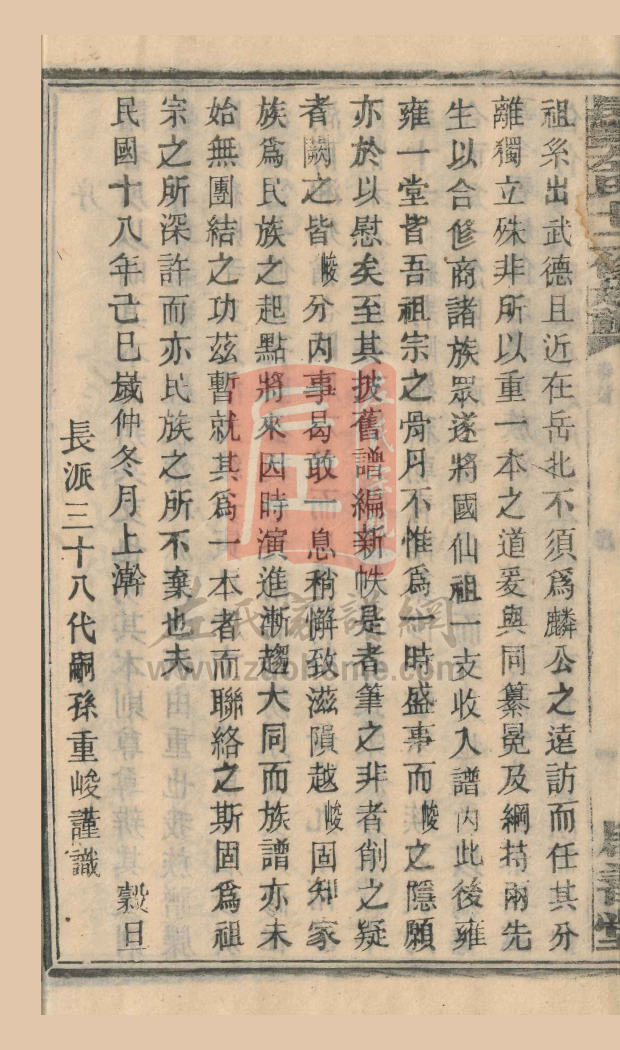 祖系出武德且近在岳北不須爲麟公之遠訪而任其分
離獨立殊非所以重一本之道爰與同纂冕及綱持兩先
生以合修商諸族眾遂將國仙祖一支收入譜內此後雍
雍一堂皆吾祖宗之骨月不惟爲一時盛事而峻之隱願
亦於以慰矣至其披舊譜編新帙是者筆之非者削之疑
者闕之皆峻分內事曷敢而一息稍懈致滋隕越峻固知家
族爲民族之起點將來因時演進漸趨大同而族譜亦未
始無團結之功茲暫就其爲一本者而聯絡之斯固爲祖
宗之所深許而亦民族之所不棄也夫
民國十八年己巳歲仲冬月上澣 穀旦
長派三十八代嗣孫重峻謹識
左氏家譜網
www.zuohome.com